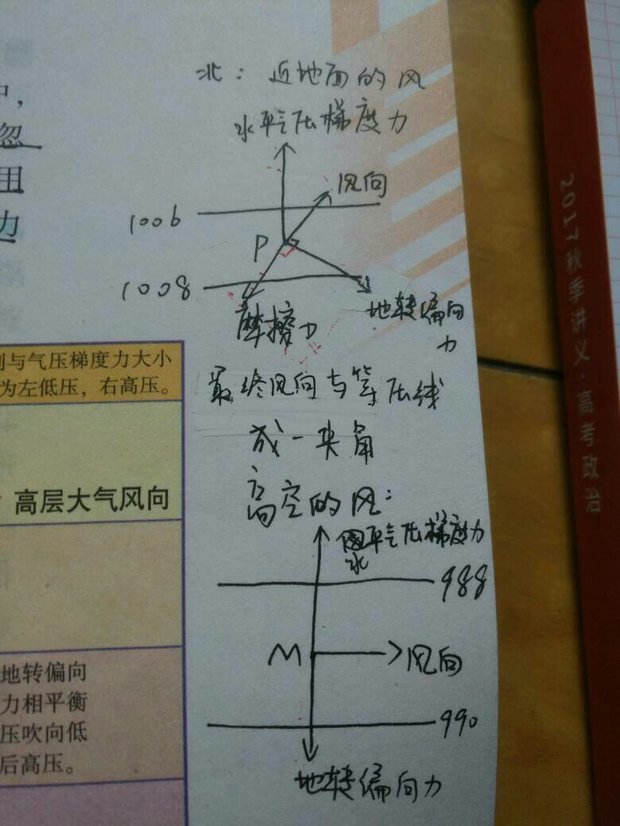 忽
用
力
北：近地面的风
水平气压梯度力
风向
1006
P
1008
摩擦力
地转偏向
力
最终风向与等压线
成一夹角
高空的风：
水平气压梯度力
988
M
风向
990
地转偏向力
与气压梯度力大小
为左低压，右高压。
高层大气风向
地转偏向
力相平衡
压吹向低
后高压。
2017秋季讲义·高考政治